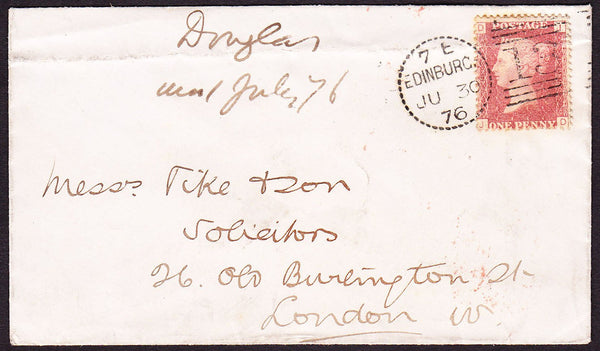 Douglas
1 July 76
POSTAGE
7 E
EDINBURG
JU 30
76
ONE PENNY
D
Messrs Tike & Son
Solicitors
26. Old Burlington St.
London W